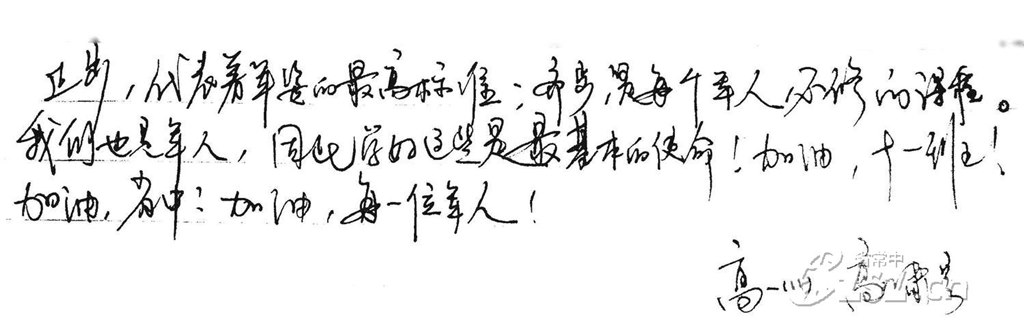 正步，代表着军姿的最高标准；齐步，是每个军人必修的课程。
我们也是军人，因此学好这些是最基本的使命！加油，十一班！
加油，省中！加油，每一位军人！
高一 高
省常中